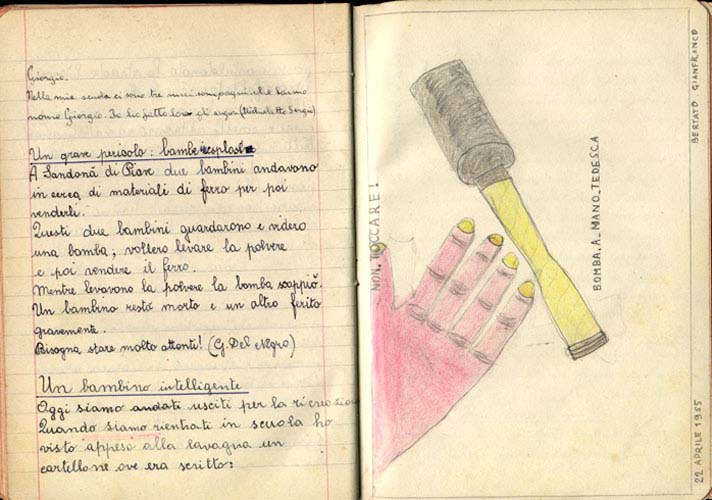 Giorgio.
Nella mia scuola ci sono tre miei compagni che hanno
nome Giorgio. Io ho fatto loro gli auguri (Michieletto Sergio)
Un grave pericolo: bombe inesplose
A Sandonà di Piave due bambini andavano
in cerca di materiali di ferro per poi
venderli.
Questi due bambini guardarono e videro
una bomba; voltero levare la polvere
e poi vendere il ferro.
Mentre levavano la polvere la bomba scoppiò.
Un bambino restò morto e un altro ferito
gravemente.
Bisogna stare molto attenti! (G. Del Negro)
Un bambino intelligente
Oggi siamo andati usciti per la ricreazione
Quando siamo rientrati in scuola ho
visto appeso alla lavagna un
cartellone ove era scritto:
NON, TOCCARE!
BOMBA. A_MANO_TEDESCA
BERTATO. GIANFRANCO
22 APRILE 1955